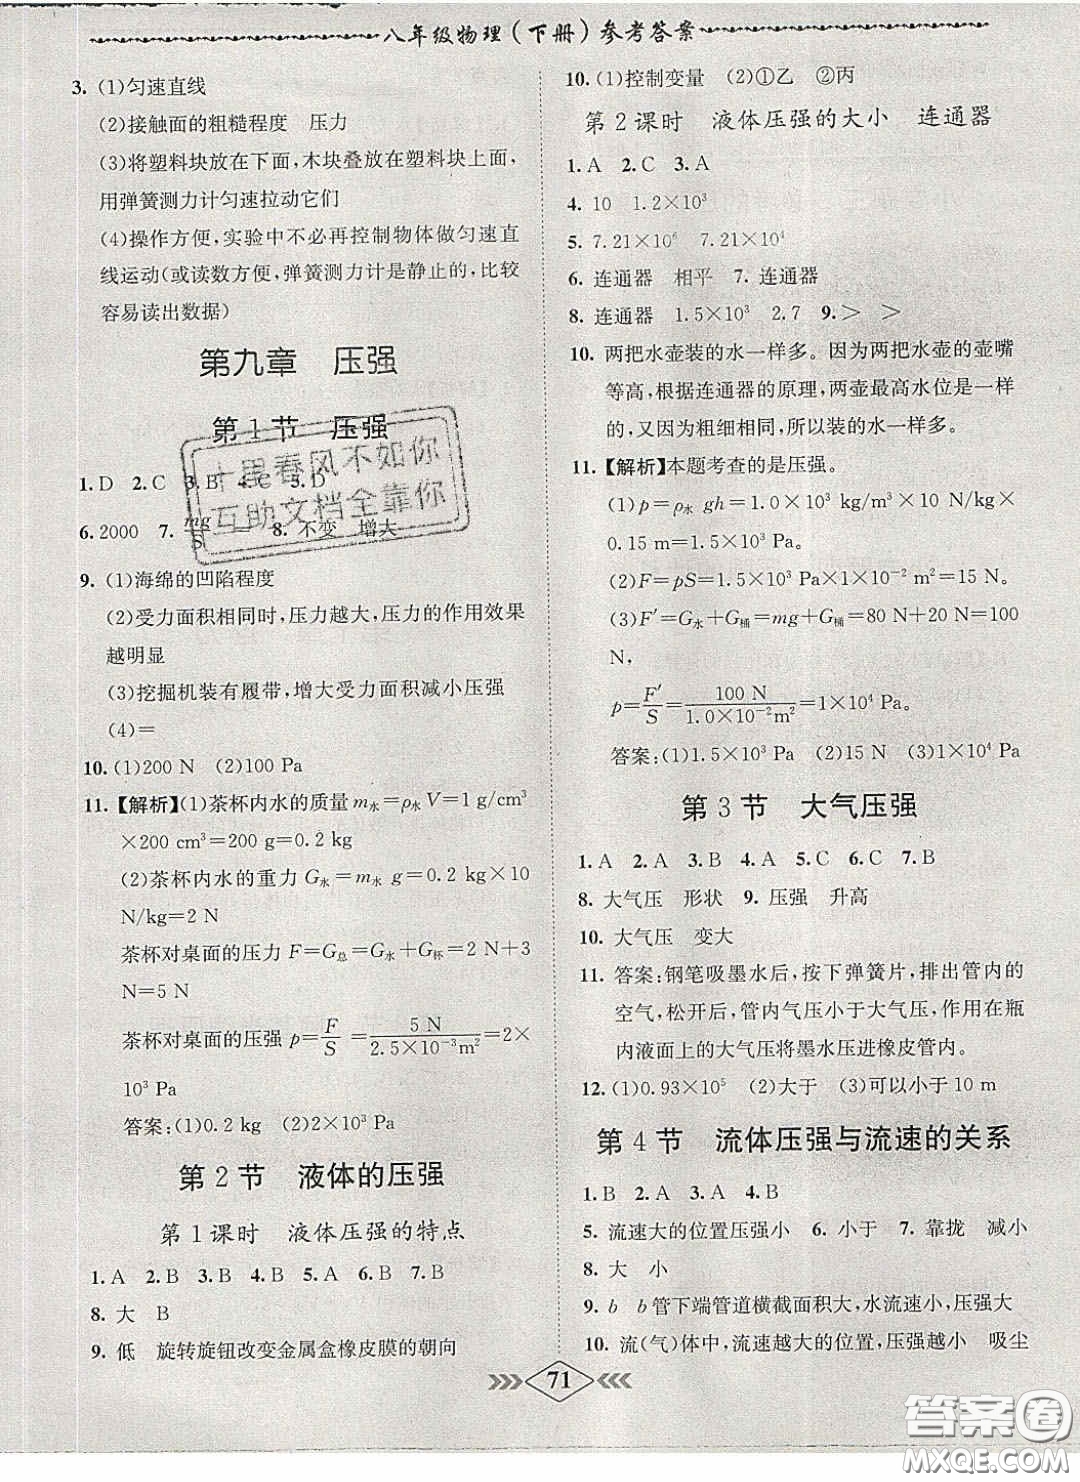 八年级物理(下册)参考答案
3. (1)匀速直线
(2)接触面的粗糙程度 压力
(3)将塑料块放在下面,木块叠放在塑料块上面,
用弹簧测力计匀速拉动它们
(4)操作方便,实验中不必再控制物体做匀速直
线运动(或读数方便,弹簧测力计是静止的,比较
容易读出数据)
第九章 压强
第1节 压强
十里春风不如你
互助文档全靠你
1. D 2. C 3. B 4. C 5. D
6. 2000 7. mg/S 8. 不变 增大
9. (1)海绵的凹陷程度
(2)受力面积相同时,压力越大,压力的作用效果
越明显
(3)挖掘机装有履带,增大受力面积减小压强
(4)=
10. (1)200 N (2)100 Pa
11.【解析】(1)茶杯内水的质量 m水=ρ水V=1 g/cm³
×200 cm³=200 g=0.2 kg
(2)茶杯内水的重力 G水=m水 g=0.2 kg×10
N/kg=2 N
茶杯对桌面的压力 F=G总=G水+G杯=2 N+3
N=5 N
茶杯对桌面的压强 p=F/S=5 N/2.5×10⁻³m²=2×
10³ Pa
答案:(1)0.2 kg (2)2×10³ Pa
第2节 液体的压强
第1课时 液体压强的特点
1. A 2. B 3. B 4. B 5. A 6. B 7. B
8. 大 B
9. 低 旋转旋钮改变金属盒橡皮膜的朝向
10. (1)控制变量 (2)①乙 ②丙
第2课时 液体压强的大小 连通器
1. A 2. C 3. A
4. 10 1.2×10³
5. 7.21×10⁶ 7.21×10⁴
6. 连通器 相平 7. 连通器
8. 连通器 1.5×10³ 2.7 9. > >
10. 两把水壶装的水一样多。因为两把水壶的壶嘴
等高,根据连通器的原理,两壶最高水位是一样
的,又因为粗细相同,所以装的水一样多。
11.【解析】本题考查的是压强。
(1)p=ρ水 gh=1.0×10³ kg/m³×10 N/kg×
0.15 m=1.5×10³ Pa。
(2)F=pS=1.5×10³ Pa×1×10⁻² m²=15 N。
(3)F′=G水+G桶=mg+G桶=80 N+20 N=100
N,
p=F′/S=100 N/1.0×10⁻²m²=1×10⁴ Pa。
答案:(1)1.5×10³ Pa (2)15 N (3)1×10⁴ Pa
第3节 大气压强
1. A 2. A 3. B 4. A 5. C 6. C 7. B
8. 大气压 形状 9. 压强 升高
10. 大气压 变大
11. 答案:钢笔吸墨水后,按下弹簧片,排出管内的
空气,松开后,管内气压小于大气压,作用在瓶
内液面上的大气压将墨水压进橡皮管内。
12. (1)0.93×10⁵ (2)大于 (3)可以小于10 m
第4节 流体压强与流速的关系
1. B 2. A 3. A 4. B
5. 流速大的位置压强小 6. 小于 7. 靠拢 减小
8. 大 小
9. b b管下端管道横截面积大,水流速小,压强大
10. 流(气)体中,流速越大的位置,压强越小 吸尘
71
答案圈
MXQE.COM